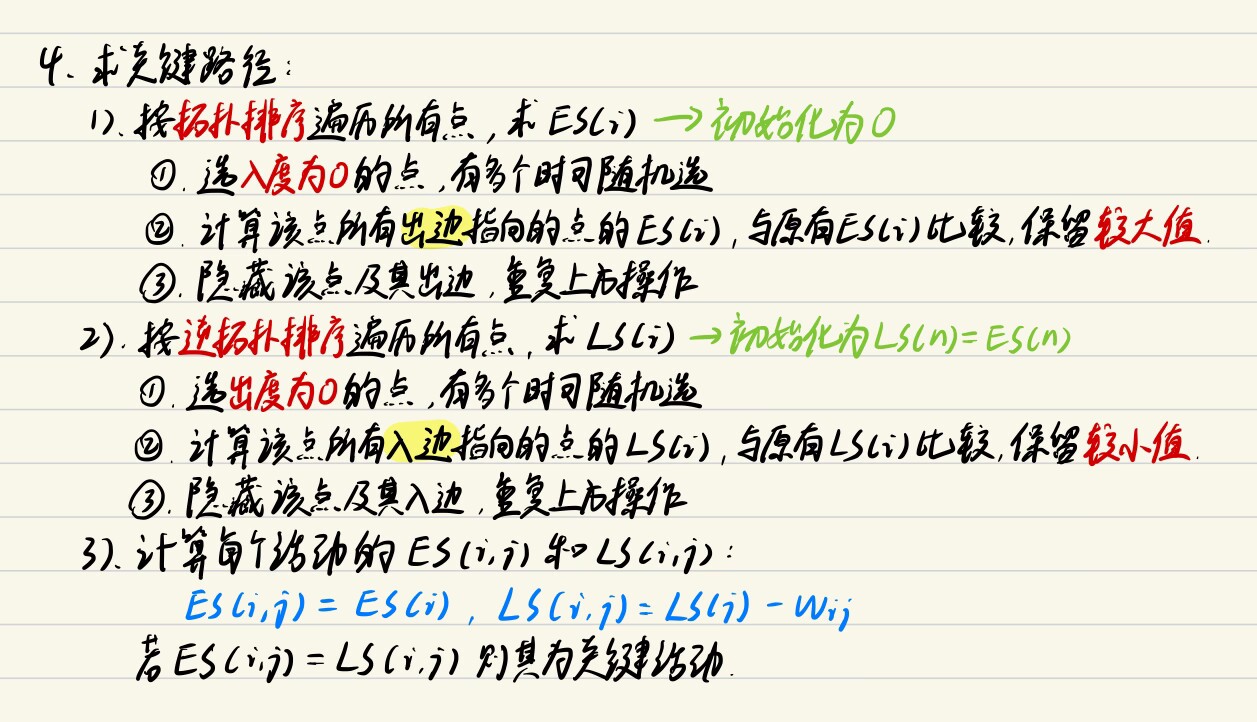 4、求关键路径：
1)、按拓扑排序遍历所有点，求 ES(i) → 初始化为0
①. 选入度为0的点，有多个时可随机选
②. 计算该点所有出边指向的点的ES(i)，与原有ES(i)比较，保留较大值.
③. 隐藏该点及其出边，重复上方操作
2). 按逆拓扑排序遍历所有点，求 LS(i) → 初始化为LS(n)=ES(n)
①. 选出度为0的点，有多个时可随机选
②. 计算该点所有入边指向的点的LS(i)，与原有LS(i)比较，保留较小值.
③. 隐藏该点及其入边，重复上方操作
3)、计算每个活动的 ES(i,j) 和 LS(i,j)：
ES(i,j) = ES(i)，LS(i,j) = LS(j) - Wij
若 ES(i,j) = LS(i,j) 则其为关键活动.